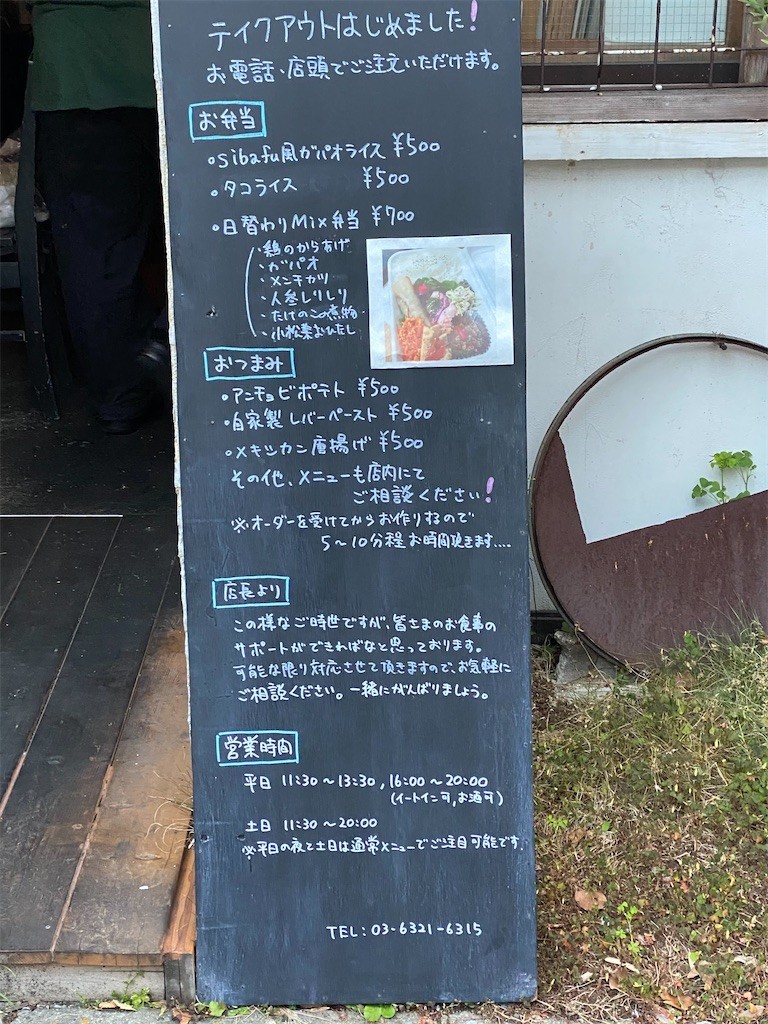 テイクアウトはじめました!
お電話、店頭でご注文いただけます。
お弁当
・sibafu風ガパオライス ¥500
・タコライス ¥500
・日替わりMix弁当 ¥700
・鶏のからあげ
・ガパオ
・メンチカツ
・人参しりしり
・たけのこの煮物
・小松菜おひたし
おつまみ
・アンチョビポテト ¥500
・自家製レバーペースト ¥500
・メキシカン唐揚げ ¥500
その他、メニューも店内にて
ご相談ください!
※オーダーを受けてからお作りするので
5〜10分程お時間頂きます....
店長より
この様なご時世ですが、皆さまのお食事の
サポートができればなと思っております。
可能な限り対応させて頂きますので、お気軽に
ご相談ください。一緒にがんばりましょう。
営業時間
平日 11:30 〜 13:30 , 16:00 〜 20:00
(イートイン可,お酒可)
土日 11:30 〜 20:00
※平日の夜と土日は通常メニューでご注目可能です.
TEL: 03-6321-6315